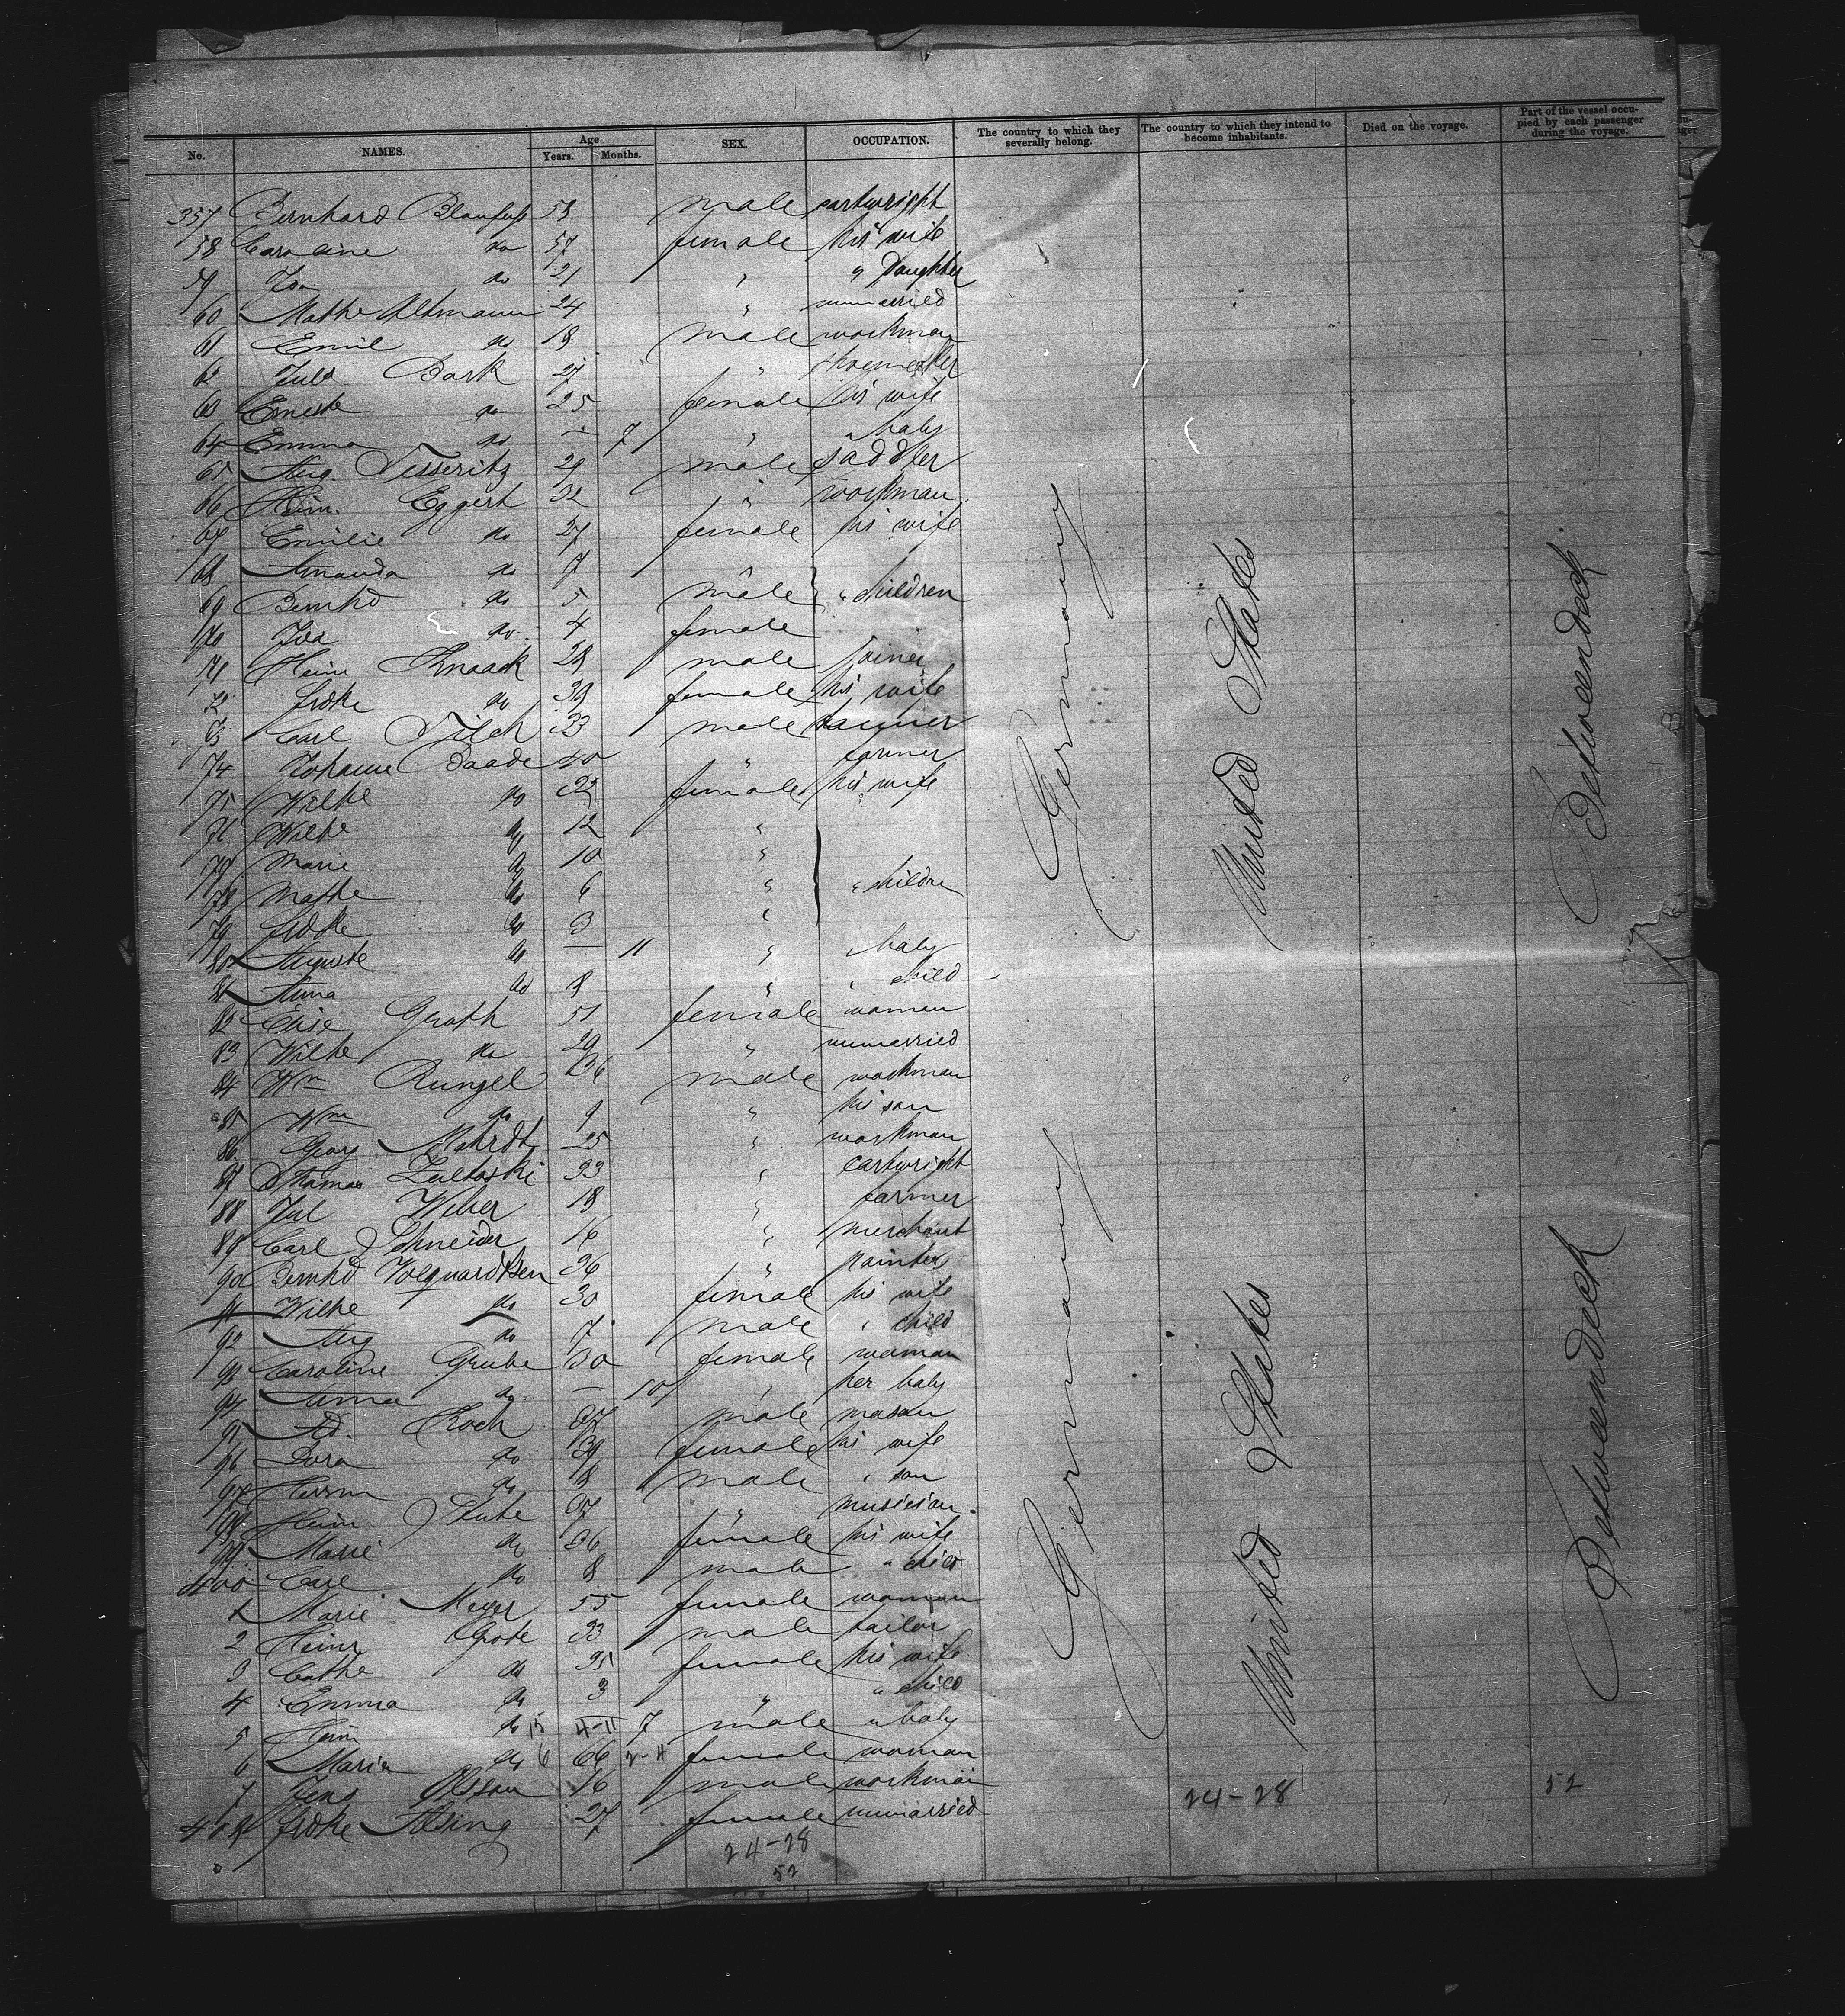 No. NAMES. Age Years. Months. SEX. OCCUPATION. The country to which they severally belong. The country to which they intend to become inhabitants. Died on the voyage. Part of the vessel occupied by each passenger during the voyage.
357 Bernhard Blaufuß 53 male cartwright
58 Caroline do 57 female his wife
59 Ida do 21 " " Daughter
60 Mathe Altmann 24 " unmarried
61 Emil do 18 male workman
62 Juls Bork 27 " shoemaker
63 Erneste do 25 female his wife
64 Emma do — 7 " " baby
65 Aug. Tesseritz 29 male saddler
66 Heinr. Eggert 32 " workman
67 Emilie do 27 female his wife
68 Amanda do 7
69 Bernhd do 5 male " children
70 Ida do 4 female
71 Heinr Knaack 28 male joiner
72 Fredke do 38 female his wife
73 Carl Tilch 33 male
74 Johann Baade 40 " farmer
75 Wilhe do 32 female his wife
76 Wilhe do 12 "
77 Marie do 10 "
78 Mathe do 6 " " childre
79 Fredke do 3 "
80 Auguste do — 11 " " baby
81 Anna do 8 " " child
82 Elise Groth 51 female woman
83 Wilhe do 29 " unmarried
84 Wm Rungel 36 male workman
85 Wm do 9 " his son
86 Georg 25 " workman
87 Thomas Zaltoski 33 " cartwright
88 Jul Weber 18 " farmer
89 Carl Schneider 16 " merchant
90 Bernhd Volquardsen 36 " painter
91 Wilhe do 30 female his wife
92 Aug do 7 male " child
93 Caroline Grube 30 female woman
94 Anna do — 10 " her baby
95 Ad. Koch 37 male mason
96 Dora do 39 female his wife
97 Herrm do 8 male " son
98 Heinr Stube 37 " musician
99 Marie do 36 female his wife
400 Carl do 8 male " child
1 Marie Meyer 55 female woman
2 Heinr Grote 33 male tailor
3 Cathe do 35 female his wife
4 Emma do 3 " " child
5 Heinr do 4-11 7 male " baby
6 Maria do 66 2-11 female woman
7 Jens Olssen 16 male workman
408 Fredke 27 female unmarried
Germany United States Betweendeck
Germany United States Betweendeck
24-28 52
24-28
52